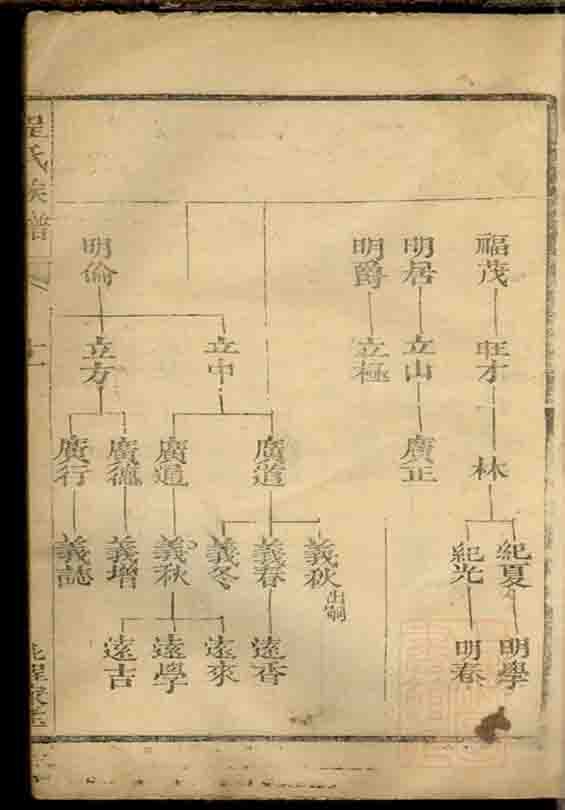 福茂
旺才
林
紀夏
明學
紀光
明春
明居
立山
廣正
明爵
立極
明倫
立中
廣道
義秋出嗣
義春
遠香
義冬
廣通
義秋
遠來
遠學
遠吉
立方
廣德
義增
廣行
義誌
程氏族譜